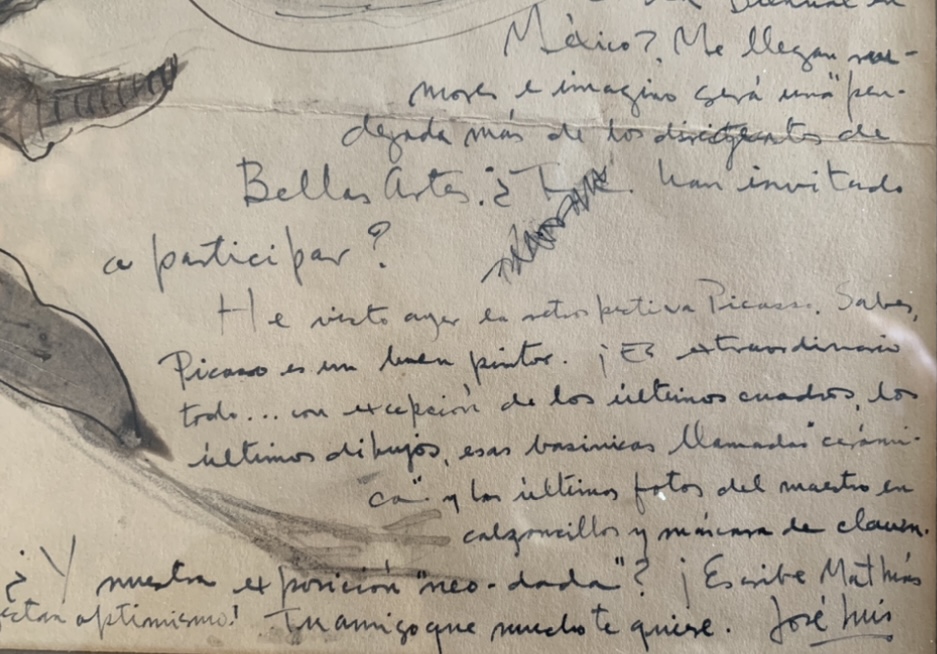 Bienal en
México? Me llegan ru-
mores e imagino será una "pen-
dejada más de los dirigentes de
Bellas Artes. ¿Te han invitado
a participar?
He visto ayer la retrospectiva Picasso. Sabes,
Picasso es un buen pintor. ¡Es extraordinario
todo... con excepción de los últimos cuadros, los
últimos dibujos, esas basinicas llamadas "cerámi-
ca" y las últimas fotos del maestro en
calzoncillos y máscara de clown.
¿Y nuestra exposición "neo-dada"? ¡Escribe Mathias
optimismo! Tu amigo que mucho te quiere. José Luis